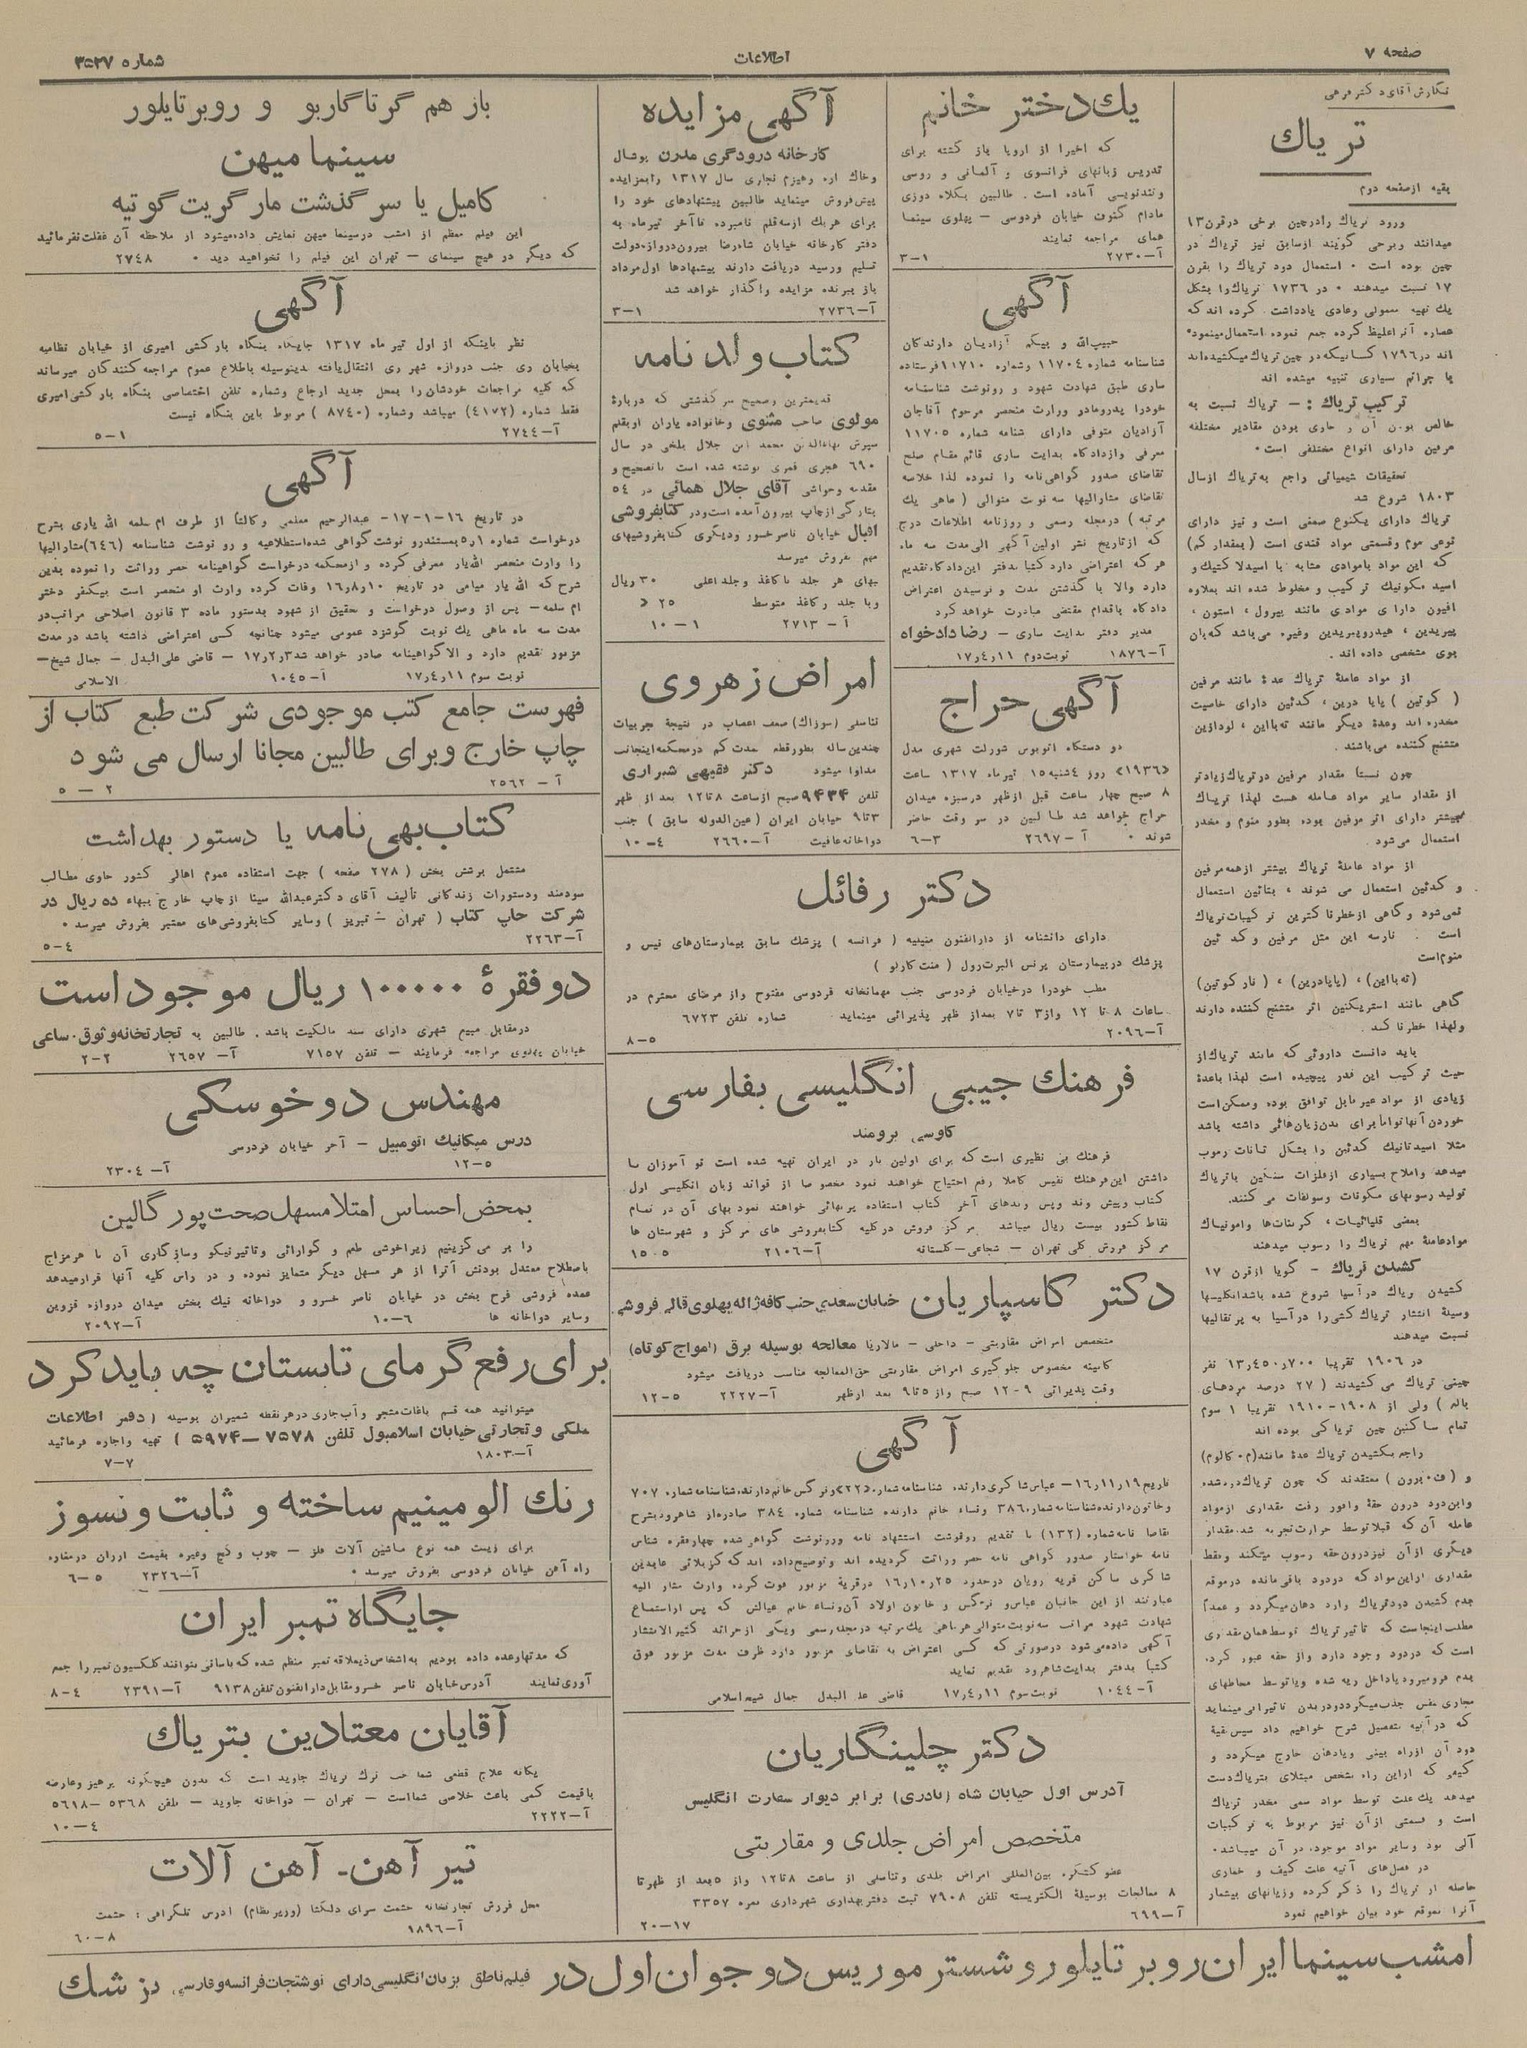 صفحه ۷
اطلاعات
شماره ۳۵۲۷
نگارش آقای دکتر فرهی
تریاك
بقیه از صفحه دوم
ورود تریاك را در چین برخی در قرن ۱۳
میدانند و برخی گویند از سابق نیز تریاك در
چین بوده است • استعمال دود تریاك را بقرن
۱۷ نسبت میدهند • در ۱۷۳۶ تریاك را بشکل
عصاره آنرا غلیظ کرده جمع نموده استعمال مینمود•
اند در ۱۷۹۶ کسانیکه در چین تریاك میکشیده اند
با جرائم بسیاری تنبیه میشده اند
ترکیب تریاك : – تریاك نسبت به
خالص بودن آن و حاوی بودن مقادیر مختلفه
مرفین دارای انواع مختلفی است•
تحقیقات شیمیائی راجع به تریاك از سال
۱۸۰۳ شروع شد
تریاك دارای یکنوع صمغی است و نیز دارای
نوعی موم و قسمتی مواد قندی است ( بمقدار کم)
که این مواد با موادی مشابه با اسید لاکتیك و
اسید مکونیك ترکیب و مخلوط شده اند بعلاوه
افیون دارای موادی مانند پیرول ، استون ،
پیریدین ، هیدروپیریدین وغیره می باشد که بان
بوی مشخصی داده اند .
از مواد عاملهٔ تریاك عدهٔ مانند مرفین
( کوتین ) پاپا درین ، کدئین دارای خاصیت
مخدره اند وعدهٔ دیگر مانند ته بااین ، لودازین
متشنج کننده می باشند .
چون نسبتاً مقدار مرفین در تریاك زیادتر
از مقدار سایر مواد عامله هست لهذا تریاك
بیشتر دارای اثر مرفین بوده بطور منوم و مخدر
استعمال می شود .
از مواد عاملهٔ تریاك بیشتر از همه مرفین
و کدئین استعمال می شوند ، بتائین استعمال
نمی شود و گاهی از خطرناکترین ترکیبات تریاك
است . نارسه این مثل مرفین و کدئین
منوم است
(ته بااین) ، (پاپادرین) ، ( نارکوتین)
گاهی مانند استریکنین اثر متشنج کننده دارند
ولهذا خطرناکند .
باید دانست داروئی که مانند تریاك از
حیث ترکیب این قدر پیچیده است لهذا با عدهٔ
زیادی از مواد غیر قابل توافق بوده و ممکن است
خوردن آنها توأماً برای بدن زیان هائی داشته باشد
مثلا اسید تانیك کدئین را بشکل تانات رسوب
میدهد واملاح بسیاری از فلزات سنگین با تریاك
تولید رسوبهای مکونات وسولفات می کنند.
بعضی قلیائیات ، کربنات ها وامونیاك
مواد عاملهٔ مهم تریاك را رسوب میدهند
کشیدن تریاك – گویا از قرن ۱۷
کشیدن تریاك در آسیا شروع شده باشد انگلیسها
وسیلهٔ انتشار تریاك کشی را در آسیا به پرتقالیها
نسبت میدهند
در ۱۹۰۶ تقریباً ۱۳٫۴۵۰٫۷۰۰ نفر
چینی تریاك می کشیدند ( ۲۷ درصد مردهای
بالغ ) ولی از ۱۹۰۸–۱۹۱۰ تقریبا ۱ سوم
تمام ساکنین چین تریاکی بوده اند
مقداری از این مواد که در دود باقی مانده در موقع
مطلب اینجاست که تأثیر تریاك توسط همان مقداری
است که در دود وجود دارد و از حقه عبور کرد.
که در آتیه بتفصیل شرح خواهیم داد سپس بقیهٔ
دود آن از راه بینی و یا دهان خارج میگردد و
کیفی که از این راه بشخص مبتلای بتریاك دست
میدهد یك علت توسط مواد سمی مخدر تریاك
است و قسمتی از آن نیز مربوط به ترکیبات
آلی بود وسایر مواد موجود، در آن میباشد•
در فصل های آتیه علت کیف و خماری
حاصله از تریاك را ذکر کرده وزیانهای بیشمار
آنرا بموقع خود بیان خواهیم نمود
یك دختر خانم
که اخیرا از اروپا باز گشته برای
تدریس زبانهای فرانسوی و آلمانی و روسی
وتندنویسی آماده است . طالبین بکلاه دوزی
مادام گنوف خیابان فردوسی – پهلوی سینما
همای مراجعه نمایند
آ–۲۷۳۰ ۱–۳
آگهی
حبیب الله و بیگم آزادیان دارندگان
شناسنامه شماره ۱۱۷۰۴ وشماره ۱۱۷۱۰ فرستاده
ساری طبق شهادت شهود و رونوشت شناسنامه
خودرا پدر ومادر وورات منحصر مرحوم آقاجان
آزادیان متوفی دارای شنامه شماره ۱۱۷۰۵
معرفی وازدادگاه بدایت ساری قائم مقام صلح
تقاضای صدور گواهی نامه را نموده لذا خلاصه
تقاضای مشارالیها سه نوبت متوالی ( ماهی یك
مرتبه ) درمجله رسمی و روزنامه اطلاعات درج
که از تاریخ نشر اولین آگهی الی مدت سه ماه
هر که اعتراضی دارد کتبا بدفتر این دادگاه تقدیم
دارد والا با گذشتن مدت و نرسیدن اعتراض
دادگاه باقدام مقتضی مبادرت خواهد کرد
مدیر دفتر بدایت ساری – رضا دادخواه
آ–۱۸۷۶ نوبت دوم ۱۱ر۴ر۱۷
آگهی حراج
دو دستگاه اتوبوس شورلت شهری مدل
《۱۹۳۶》 روز ۴شنبه ۱۵ تیرماه ۱۳۱۷ ساعت
۸ صبح چهار ساعت قبل از ظهر در سبزه میدان
حراج خواهد شد طالبین در سر وقت حاضر
شوند • آ – ۲۶۹۷ ۳–۶
آگهی مزایده
کارخانه درودگری مدرن پوشال
وخاك اره وهیزم نجاری سال ۱۳۱۷ را بمزایده
پیش فروش مینماید طالبین پیشنهادهای خود را
برای هریك از سه قلم نامبرده تا آخر تیرماه به
دفتر کارخانه خیابان شاه رضا بیرون دروازه دولت
تسلیم ورسید دریافت دارند پیشنهادها اول مرداد
باز ببرنده مزایده واگذار خواهد شد
آ–۲۷۳۶ ۱–۳
کتاب ولد نامه
قدیمترین وصحیح سرگذشتی که دربارهٔ
مولوی صاحب مثنوی وخانواده یاران او بقلم
پسرش بهاءالدین محمد ابن جلال بلخی در سال
۶۹۰ هجری قمری نوشته شده است با تصحیح و
مقدمه وحواشی آقای جلال همائی در ۵۴
بتازگی از چاپ بیرون آمده است ودر کتابفروشی
اقبال خیابان ناصر خسرو ودیگری کتابفروشیهای
مهم بفروش میرسد
بهای هر جلد با کاغذ وجلد اعلی ۳۰ ریال
وبا جلد وکاغذ متوسط ۲۵ 《
آ – ۲۷۱۳ ۱ – ۱۰
امراض زهروی
تناسلی (سوزاك) ضعف اعصاب در نتیجهٔ تجربیات
چندین ساله بطور قطع مدت کم در محکمه اینجانب
مداوا میشود دکتر فقیهی شیرازی
تلفن ۹۴۳۴ صبح از ساعت ۸ تا ۱۲ بعد از ظهر
۳ تا ۹ خیابان ایران ( عین الدوله سابق ) جنب
دواخانه عافیت آ–۲۶۶۰ ۴–۱۰
دکتر رفائل
دارای دانشنامه از دارالفنون منپلیه ( فرانسه ) پزشك سابق بیمارستان های نیس و
پزشك در بیمارستان پرنس البرت رول ( منت کارلو )
مطب خودرا در خیابان فردوسی جنب مهمانخانه فردوسی مفتوح واز مرضای محترم در
ساعات ۸ تا ۱۲ واز ۳ تا ۷ بعد از ظهر پذیرائی مینماید شماره تلفن ۶۷۲۳
آ–۲۰۹۶ ۵–۸
فرهنك جیبی انگلیسی بفارسی
کاوسی برومند
فرهنك بی نظیری است که برای اولین بار در ایران تهیه شده است نو آموزان با
داشتن این فرهنك نفیس کاملا رفع احتیاج خواهند نمود مخصوصا از فواند زبان انگلیسی اول
کتاب وپیش وند وپس وندهای آخر کتاب استفاده پربهائی خواهند نمود بهای آن در تمام
نقاط کشور بیست ریال میباشد مرکز فروش در کلیه کتابفروشی های مرکز و شهرستان ها
مرکز فروش کلی تهران – شجاعی–گلستانه آ–۲۱۰۶ ۵–۱۵
دکتر کاسپاریان خیابان سعدی جنب کافه ژاله پهلوی قالی فروشی
متخصص امراض مقاربتی – داخلی – مالاریا معالجه بوسیله برق (امواج کوتاه)
کابینه مخصوص جلوگیری امراض مقاربتی حق المعالجه مناسب دریافت میشود
وقت پذیرائی ۹–۱۲ صبح واز ۵ تا ۹ بعد از ظهر آ–۲۲۲۷ ۵–۱۲
آگهی
وخاتون دارنده شناسنامه شماره ۳۸۶ ونساء خانم دارنده شناسنامه شماره ۳۸۴ صادره از شاهرود بشرح
نامه خواستار صدور گواهی نامه حصر وراثت گردیده اند وتوضیح داده اند که کربلائی عابدین
شاکری ساکن قریه رویان در حدود ۲۵ر۱۰ر۱۶ در قریهٔ مزبور فوت کرده وارث مشار الیه
عبارتند از این جانبان عباس و نرگس و خاتون اولاد آن ونساء خانم عیالش که پس از استماع
شهادت شهود مراتب سه نوبت متوالی هر ماهی یك مرتبه در مجله رسمی ویکی از جرائد کثیرالانتشار
آگهی داده می شود در صورتی که کسی اعتراض به تقاضای مزبور دارد ظرف مدت مزبور فوق
کتباً بدفتر بدایت شاهرود تقدیم نماید
آ–۱۰۴۴ نوبت سوم ۱۱ر۴ر۱۷ قاضی علی البدل جمال شیخ اسلامی
دکتر چلینگاریان
آدرس اول خیابان شاه (نادری) برابر دیوار سفارت انگلیس
متخصص امراض جلدی و مقاربتی
عضو کنگره بین المللی امراض جلدی وتناسلی از ساعت ۸ تا ۱۲ واز ۵ بعد از ظهر تا
۸ معالجات بوسیلهٔ الکتریسته تلفن ۷۹۰۸ ثبت دفتر بهداری شهرداری نمره ۳۳۵۷
آ–۶۹۹ ۱۷–۲۰
باز هم گرتا گاربو و روبر تایلور
سینما میهن
کامیل یا سر گذشت مارگریت گوتیه
این فیلم معظم از امشب در سینما میهن نمایش داده میشود از ملاحظه آن غفلت نفرمائید
که دیگر در هیچ سینمای – تهران این فیلم را نخواهید دید • ۲۷۴۸
آگهی
نظر باینکه از اول تیر ماه ۱۳۱۷ جایگاه بنگاه بارکشی امیری از خیابان نظامیه
بخیابان ری جنب دروازه شهر ری انتقال یافته بدینوسیله باطلاع عموم مراجعه کنندگان میرساند
که کلیه مراجعات خودشان را بمحل جدید ارجاع وشماره تلفن اختصاصی بنگاه بارکشی امیری
فقط شماره (۴۱۷۲) میباشد وشماره ( ۸۷۴۰ ) مربوط باین بنگاه نیست
آ–۲۷۴۴ ۱–۵
آگهی
در تاریخ ۱۶–۱–۱۷– عبدالرحیم معلمی وکالتاً از طرف ام سلمه الله یاری بشرح
درخواست شماره ۵٫۱ بمستند رو نوشت گواهی شده استطلاعیه و رو نوشت شناسنامه (۶۴۶) مشارالیها
را وارث منحصر الله یار معرفی کرده و از محکمه درخواست گواهینامه حصر وراثت را نموده بدین
شرح که الله یار میامی در تاریخ ۱۰ر۸ر۱۶ وفات کرده وارث او منحصر است بیکنفر دختر
ام سلمه – پس از وصول درخواست و تحقیق از شهود بدستور ماده ۳ قانون اصلاحی مراتب در
مدت سه ماه ماهی یك نوبت گوشزد عمومی میشود چنانچه کسی اعتراضی داشته باشد در مدت
مزبور تقدیم دارد و الا گواهینامه صادر خواهد شد ۳ر۲ر۱۷ – قاضی علی البدل – جمال شیخ–
نوبت سوم ۱۱ر۴ر۱۷ آ–۱۰۴۵ الاسلامی
فهرست جامع کتب موجودی شرکت طبع کتاب از
چاپ خارج وبرای طالبین مجانا ارسال می شود
آ – ۲۵۶۲ ۲ – ۵
کتاب بهی نامه یا دستور بهداشت
مشتمل برشش بخش ( ۲۷۸ صفحه ) جهت استفاده عموم اهالی کشور حاوی مطالب
سودمند ودستورات زندگانی تألیف آقای دکتر عبدالله سینا از چاپ خارج ببهاء ده ریال در
شرکت چاپ کتاب ( تهران – تبریز ) وسایر کتابفروشی های معتبر بفروش میرسد •
آ–۲۲۶۳ ۴–۵
دو فقرهٔ ۱۰۰۰۰۰ ریال موجود است
در مقابل مبیع شهری دارای سند مالکیت باشد . طالبین به تجارتخانه وثوق. ساعی
خیابان پهلوی مراجعه فرمایند – تلفن ۷۱۵۷ آ– ۲۶۵۷ ۲–۲
مهندس دوخوسکی
درس میکانیك اتومبیل – آخر خیابان فردوسی
۵–۱۲ آ– ۲۳۰۴
بمحض احساس امتلا مسهل صحت پور گالین
را بر می گزینیم زیرا خوشی طعم و گوارائی وتاثیر نیکو وسازگاری آن با هر مزاج
باصطلاح معتدل بودنش آنرا از هر مسهل دیگر متمایز نموده و در راس کلیه آنها قرار میدهد
عمده فروشی فرح بخش در خیابان ناصر خسرو و دواخانه نیك بخش میدان دروازه قزوین
وسایر دواخانه ها ۶–۱۰ آ–۲۰۹۲
برای رفع گرمای تابستان چه باید کرد
میتوانید همه قسم باغات مشجر و آب جاری در هر نقطه شمیران بوسیله ( دفتر اطلاعات
ملکی و تجارتی خیابان اسلامبول تلفن ۷۵۷۸–۵۹۷۴ ) تهیه واجاره فرمائید
آ–۱۸۰۳ ۷–۷
رنك الومینیم ساخته و ثابت و نسوز
برای زینت همه نوع ماشین آلات فلز – چوب و گچ وغیره بقیمت ارزان در مغازه
راه آهن خیابان فردوسی بفروش میرسد • آ–۲۳۲۶ ۵–۶
جایگاه تمبر ایران
که مدتها وعده داده بودیم به اشخاص ذیعلاقه تمبر منظم شده که باسانی بتوانند کلکسیون تمبر را جمع
آوری نمایند آدرس خیابان ناصر خسرو مقابل دارالفنون تلفن ۹۱۳۸ آ–۲۳۹۱ ۴–۸
آقایان معتادین بتریاك
یگانه علاج قطعی شما حب ترك تریاك جاوید است که بدون هیچگونه پرهیز وعارضه
با قیمت کمی باعث خلاصی شماست – تهران – دواخانه جاوید – تلفن ۵۳۶۸–۵۶۱۸
آ–۲۲۲۲ ۴–۱۰
تیر آهن– آهن آلات
محل فروش تجارتخانه حشمت سرای دلگشا (وزیر نظام) ادرس تلگرافی : حشمت
آ–۱۸۹۶ ۸–۶۰
امشب سینما ایران روبر تایلور و شستر موریس دو جوان اول در فیلم ناطق بزبان انگلیسی دارای نوشتجات فرانسه وفارسی پزشك